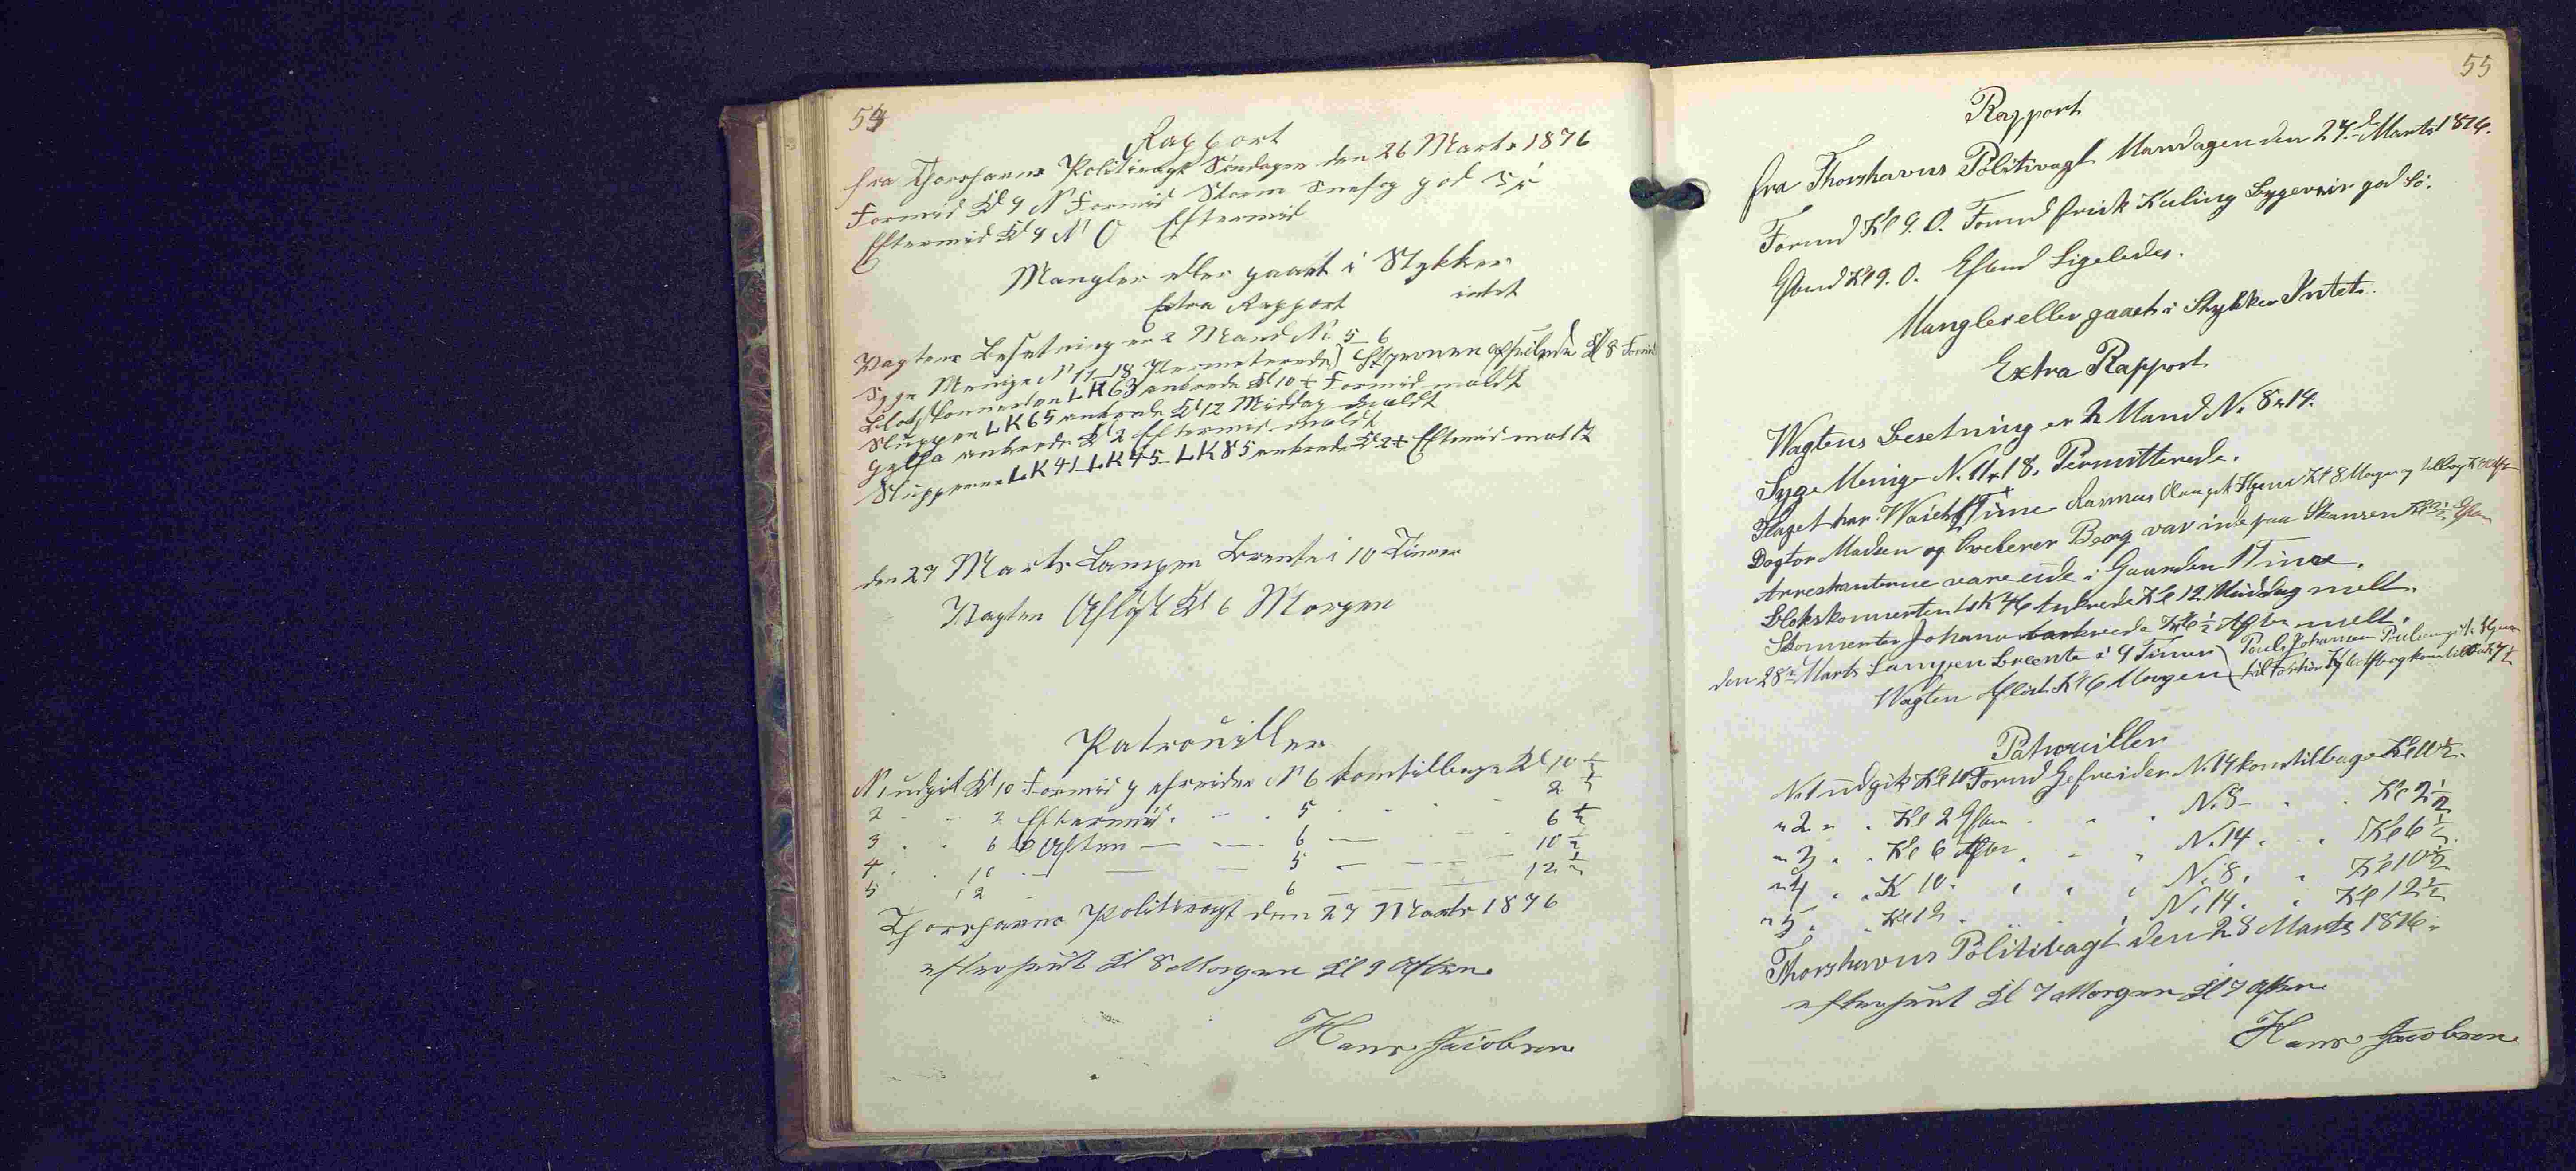 54
Rapport
fra Thorshavns Politivagt Søndagen den 26 Marts 1876
Formid Kl 9 N Formid Storm Snefog god Sö
Eftermid Kl 9 N O Eftermid
Mangler eller gaaet i Stykker
Extra Rapport intet
Vagtens Besetning er 2 Mand No 5 6
Syge Menige N 11 18 Permeterede
afseilede Kl 8 Formid
LK 63 ankrede Kl 10 ½ Formid maldt
Sluppen LK 65 ankrede Kl 12 Middag maldt
ankrede Kl 2 Eftermid maldt
Slupperne LK 41 LK 45 LK 85 ankrede Kl 2 ½ Eftmid maldt
den 27 Marts Lampen Brente i 10 Timer
Vagten Afløst Kl 6 Morgen
Patrouiller
N 1 udgik Kl 10 Formid gefreider N 6 kom tilbage Kl 10 ½
2 - - 2 Eftermid - - 5 - - 2 ½
3 - - 6 Aften - - 6 - - 6 ½
4 - - 10 - - 5 - - 10 ½
5 12 - 6 - - 12 ½
Thorshavns Politivagt den 27 Marts 1876
efterseet Kl 8 Morgen Kl 9 Aften
Hans Jacobsen
55
Rapport
fra Thorshavns Politivagt Mandagen den 27de Marts 1876.
Formd Kl 9. O. Formd frisk Kuling Bygeveir god Sö.
Eftmd Kl 9. O. Eftmd Ligeledes.
Mangler eller gaaet i Stykker Intet.
Extra Rapport
Wagtens Besetning er 2 Mand N. 8 & 14.
Syge Menige N. 11 & 18. Permitterede.
Flaget har Waiet Time Rasmus gik Hjem Kl 8 Morgen og
Dogtor Madsen og Berg var inde paa Skansen Kl
Arrestanterne vare ude i Gaarden 1 Time.
LK 46 Ankrede Kl 12 Middag melt.
Skonnerten Johanne Ankrede Kl 6 ½ Aften melt.
den 28de Marts Lampen Brente i 9 Timer
Wagten Afløst Kl 6 Morgen
Patrouiller
N. 1 udgik Kl 10 Formd Gefreider N. 14 kom tilbage Kl 10 ½
" 2 " . Kl 2 Eftm . . . N. 8 - . . Kl 2 ½
" 3 . . Kl 6 Aften . . " N. 14 . . Kl 6 ½
" 4 . . K 10. . . . N. 8. . Kl 10 ½
" 5. . Kl 12 . . . N. 14. . Kl 12 ½
Thorshavns Politivagt den 28 Marts 1876.
efterseet Kl 7 Morgen Kl 7 Aften
Hans Jacobsen